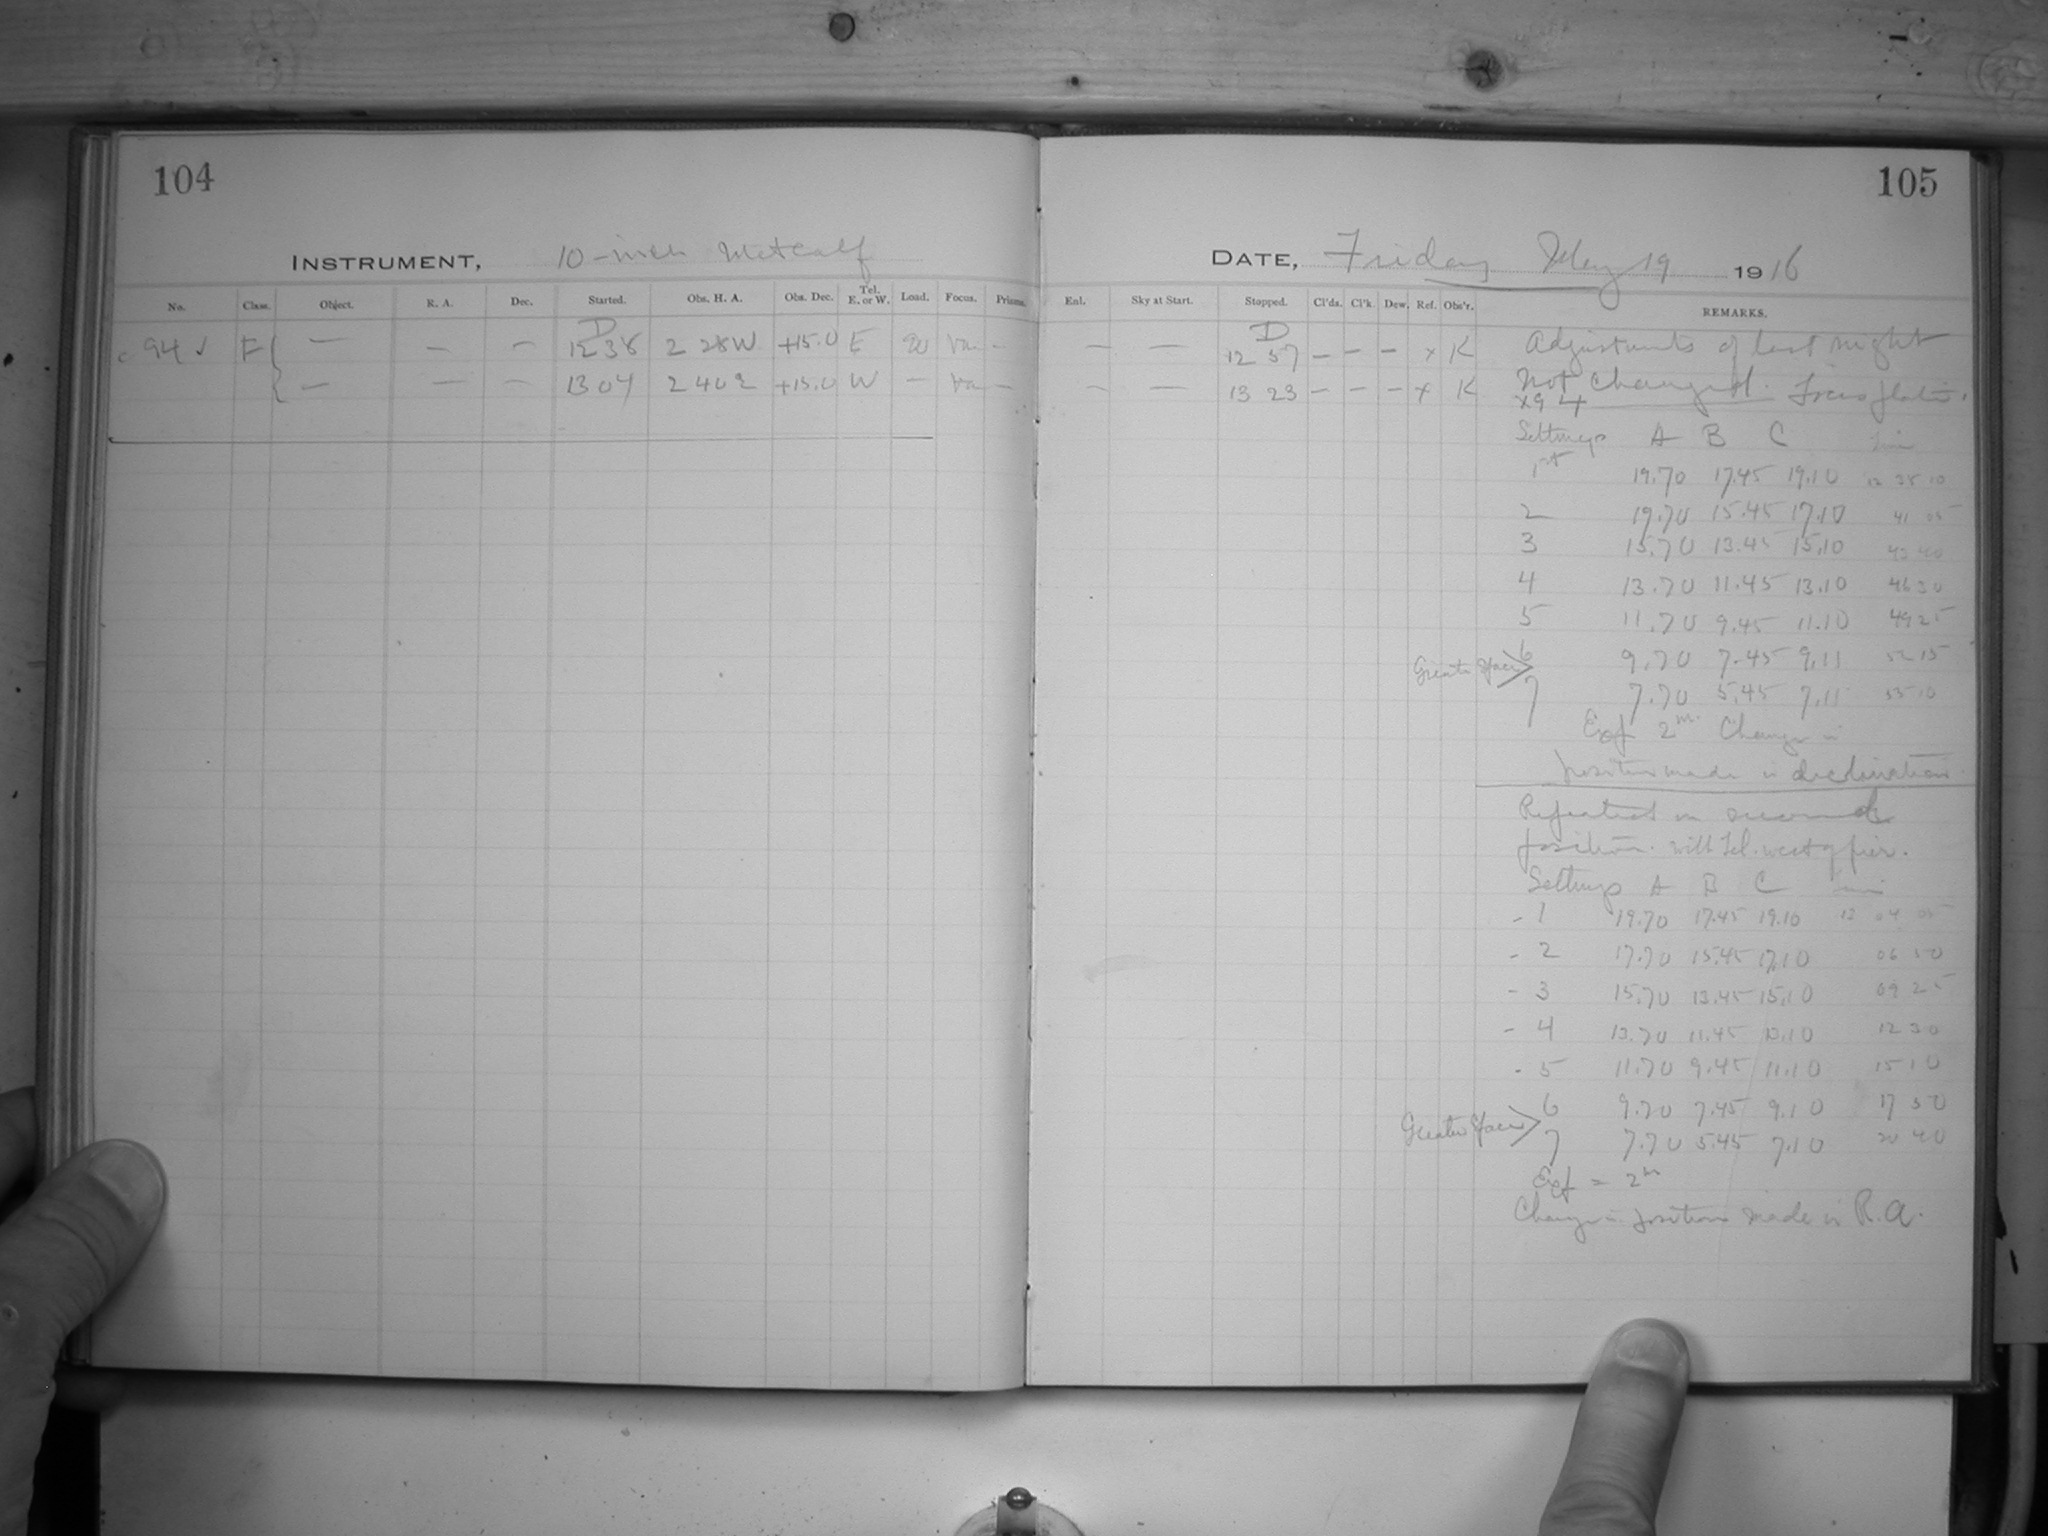 104
INSTRUMENT, 10-inch Metcalf
No. Class. Object. R. A. Dec. Started. Obs. H. A. Obs. Dec. Tel. E. or W. Load. Focus. Prisms.
D
c 94 ✓ F { — — — 12 38 2 28 W +15.0 E 20 Var —
— — — 13 04 2 40 +15.0 W — Var —
105
DATE, Friday May 19 1916
Enl. Sky at Start. Stopped. Cl'ds. Cl'k. Dew. Ref. Obs'r. REMARKS.
D
— — 12 57 — — — x K Adjustments of last night
— — 13 23 — — — x K Not changed. Focus plate.
x94
Settings A B C
1st 19.70 17.45 19.10 12 38 10
2 19.70 15.45 17.10 41 05
3 15.70 13.45 15.10 43 40
4 13.70 11.45 13.10 46 30
5 11.70 9.45 11.10 49 25
Greater space > 6 9.70 7.45 9.11 52 15
7 7.70 5.45 7.11 55 10
Exp 2m. Change in
position made in declination.
Repeated in second
position with Tel. west of pier.
Settings A B C
- 1 19.70 17.45 19.10 13 04 05
- 2 17.70 15.45 17.10 06 50
- 3 15.70 13.45 15.10 09 25
- 4 13.70 11.45 13.10 12 30
- 5 11.70 9.45 11.10 15 10
Greater Space > 6 9.70 7.45 9.10 17 50
7 7.70 5.45 7.10 20 40
Exp = 2m
Change in position made in R.A.